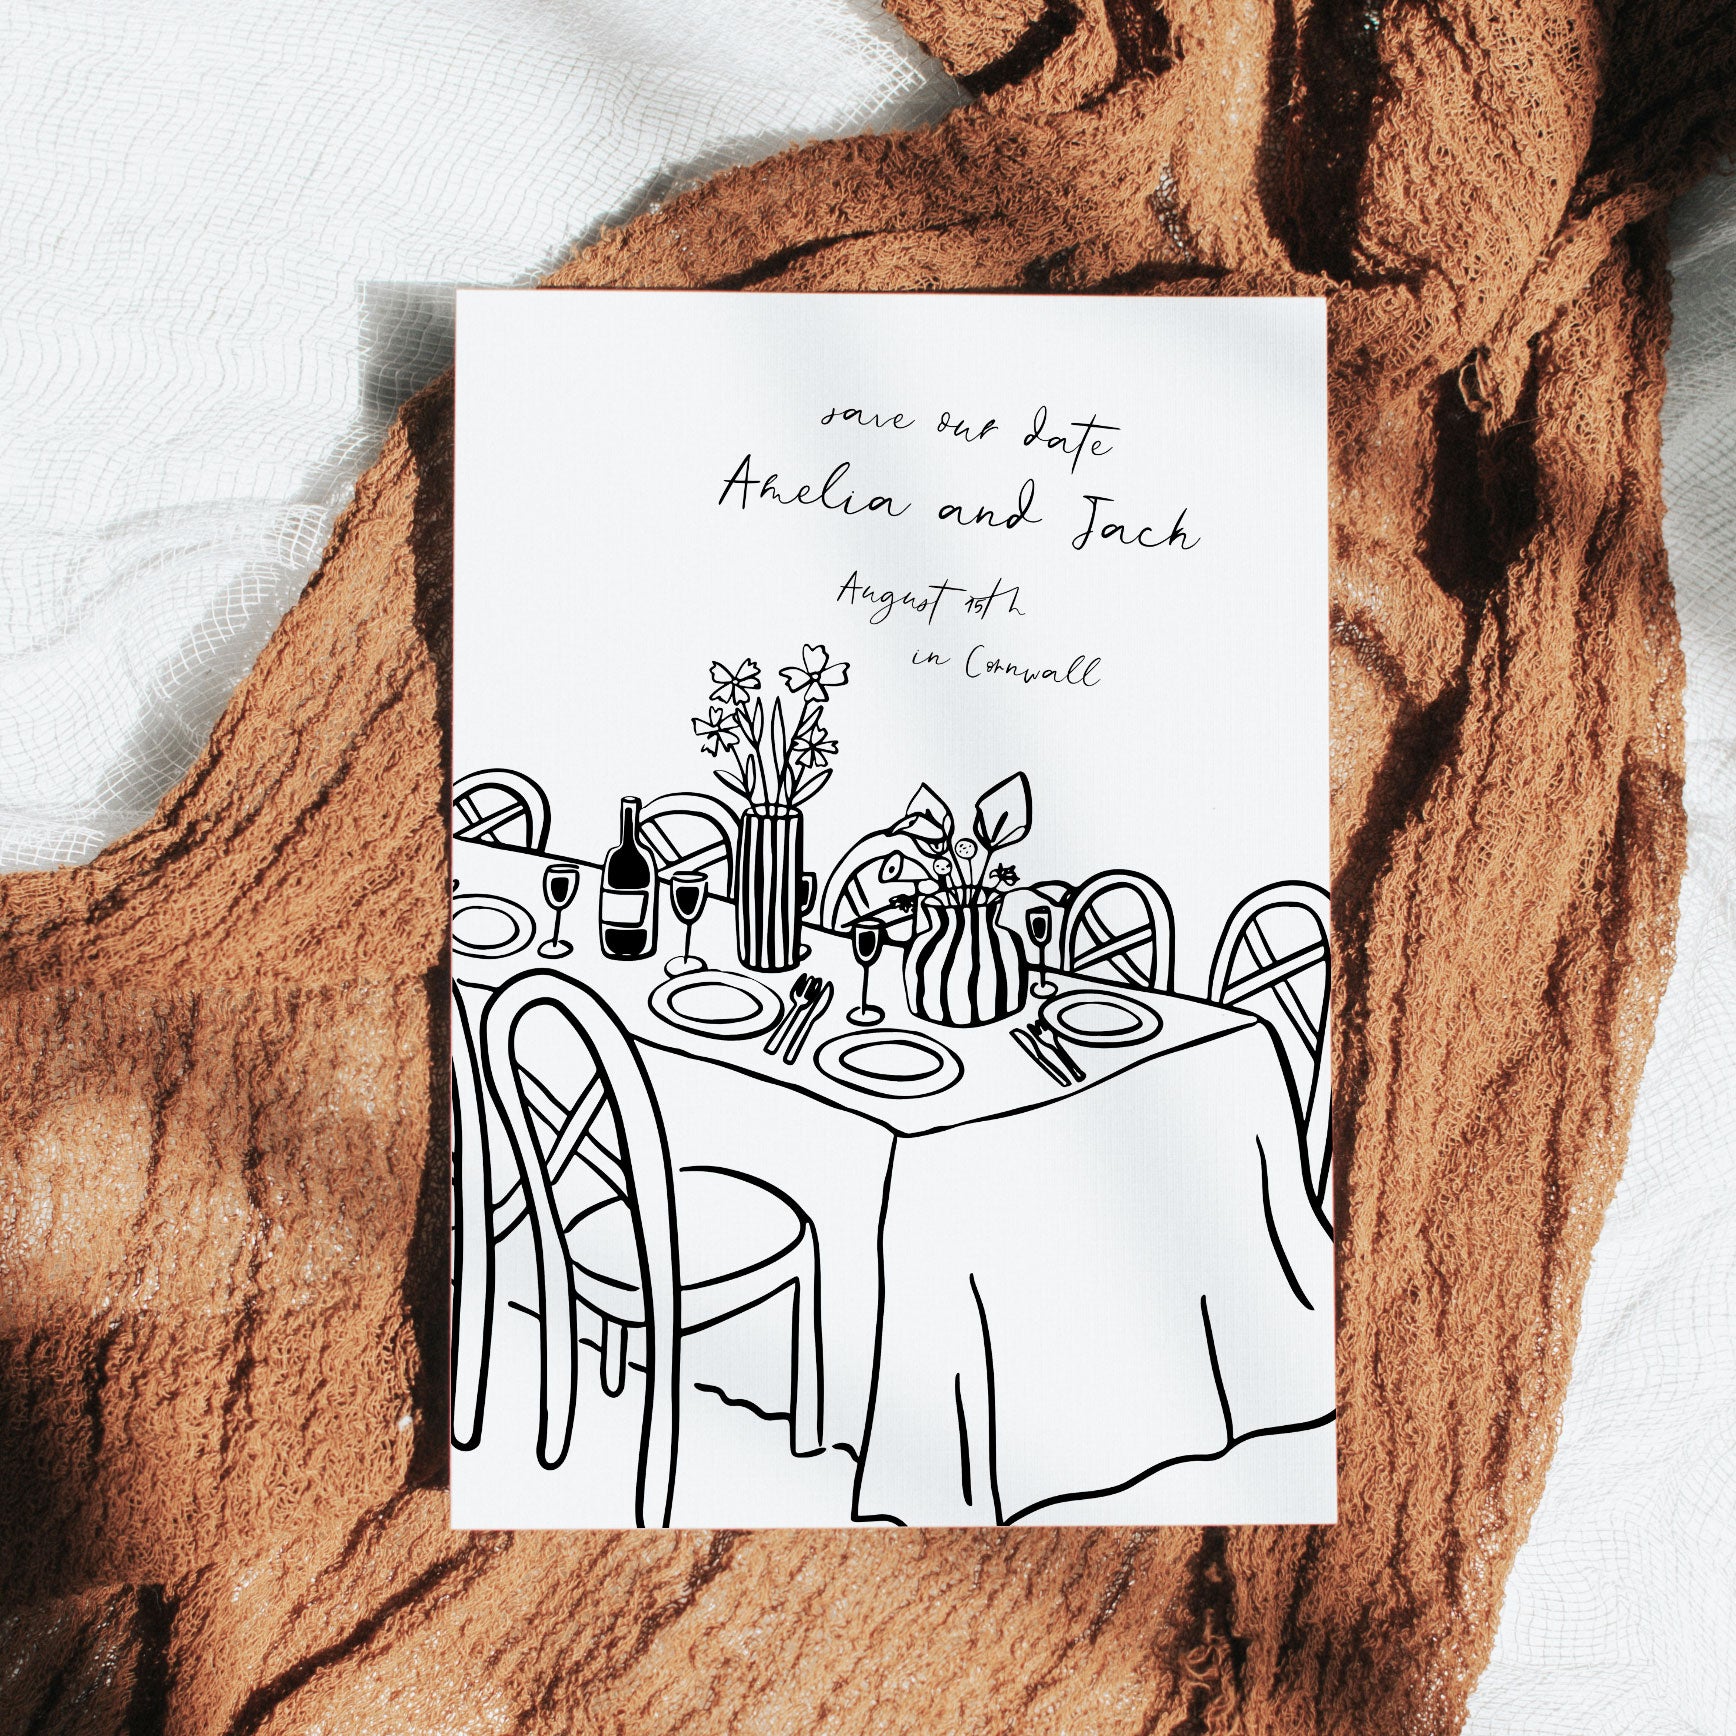 save our date
Amelia and Jack
August 15th
in Cornwall